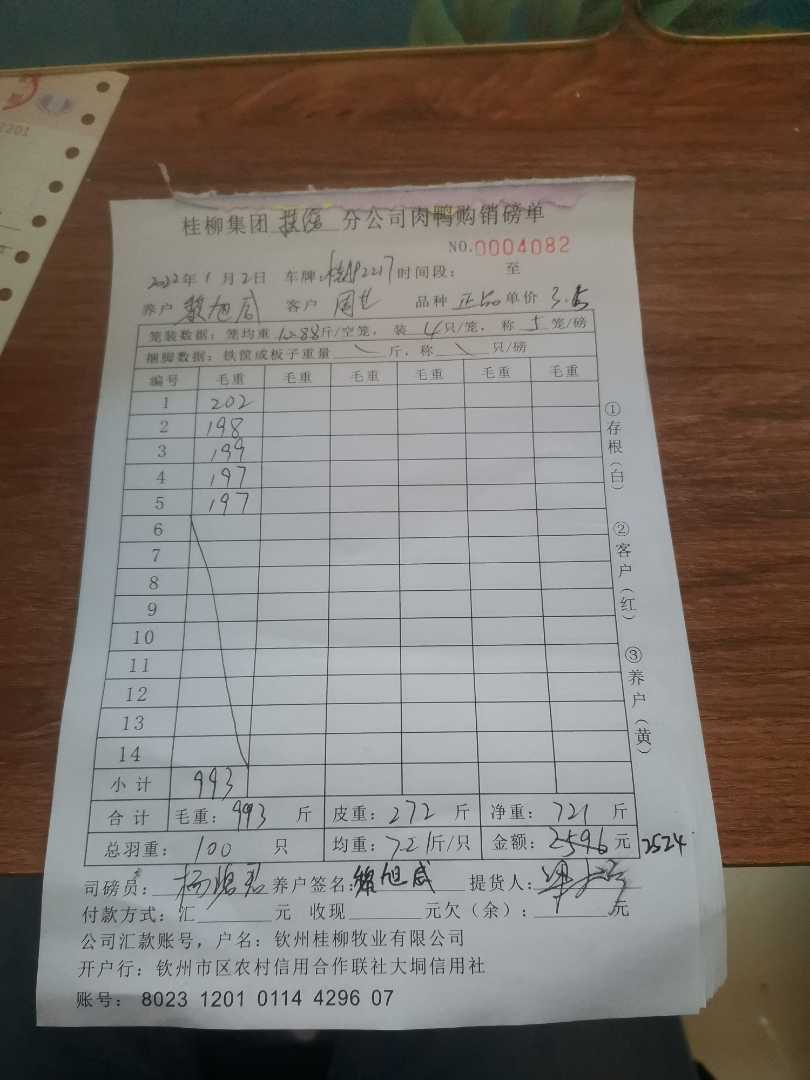 2201
桂柳集团 分公司肉鸭购销磅单
NO.0004082
2022年1月2日 车牌: 2217 时间段: 至
养户 黎旭威 客户 周 品种 正品 单价 3.5
笼装数据: 笼均重 斤/空笼, 装 4 只/笼, 称 5 笼/磅
捆脚数据: 铁筐或板子重量 \ 斤, 称 \ 只/磅
编号 毛重 毛重 毛重 毛重 毛重 毛重
1 202
2 198
3 199
4 197
5 197
6
7
8
9
10
11
12
13
14
小计 993
合计 毛重: 993 斤 皮重: 272 斤 净重: 721 斤
总羽重: 100 只 均重: 7.21斤/只 金额: 2596 元 2524
司磅员: 杨 养户签名: 黎旭威 提货人:
付款方式: 汇 元 收现 元欠(余): 元
公司汇款账号, 户名: 钦州桂柳牧业有限公司
开户行: 钦州市区农村信用合作联社大垌信用社
账号: 8023 1201 0114 4296 07
①存根(白)
②客户(红)
③养户(黄)